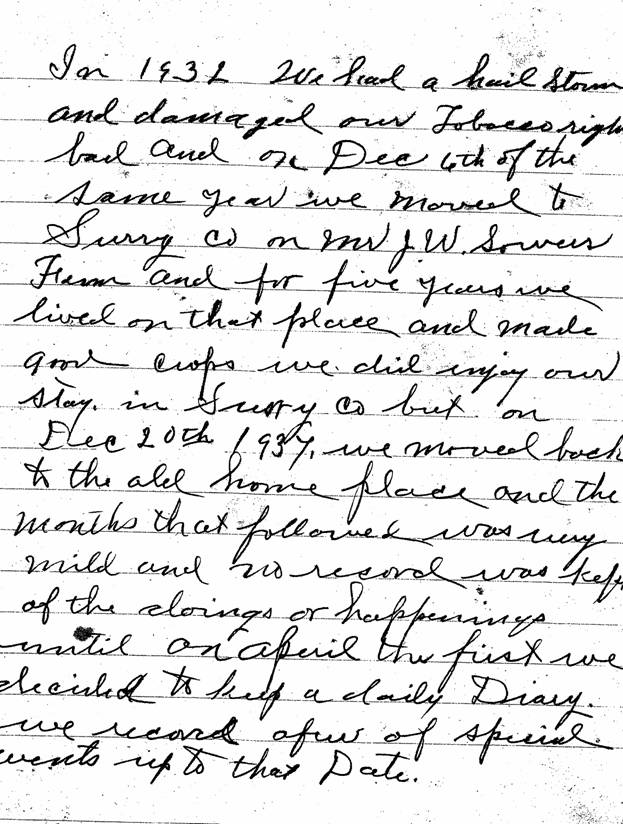 In 1932 We had a hail storm
and damaged our Tobacco right
bad and on Dec 6th of the
same year we moved to
Surry Co on Mr J.W. Sowers
Farm and for five years we
lived on that place and made
good crops we did enjoy our
stay. in Surry Co but on
Dec 20th 1937, we moved back
to the old home place and the
months that followed was very
mild and no record was kept
of the doings or happenings
until on April the first we
decided to keep a daily Diary.
we record a few of special
events up to that Date.